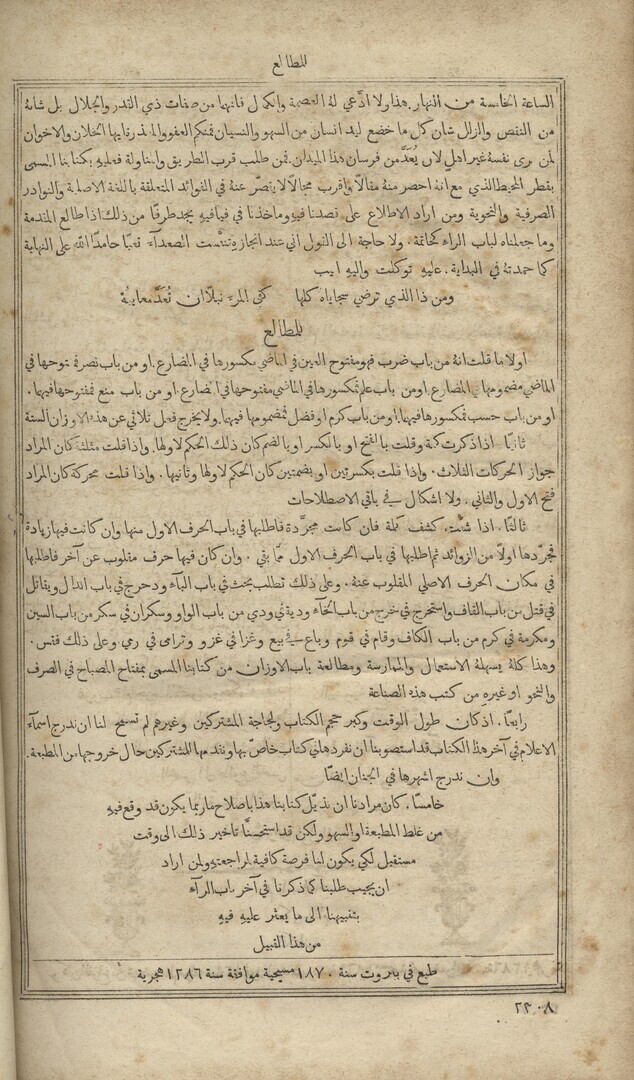 للمطالع
الساعة الخامسة من النهار. هذا ولا ادّعي لهُ العصمة والكمال فانهما من صفات ذي القدر والجلال بل شانهُ
من النقص والزلل شان كل ما خضع ليد انسان من السهو والنسيان فمنكم العفو والمعذرة ايها الخلان والاخوان
لمن يرى نفسهُ غير اهلٍ لان يُعَدَّ من فرسان هذا الميدان. فمن طلب قرب الطريق والمناولة فعليهِ بكتابنا المسمى
بقطر المحيط الذي مع انهُ احصر منهُ مقالًا واقرب مجالًا لا يقصّر عنهُ في الفوائد المتعلقة باللغة الاصلية والنوادر
الصرفية والنحوية ومن اراد الاطلاع على قصدنا فيهِ وماخذنا في فيافيهِ يجد طرفًا من ذلك اذا طالع المقدمة
وما جعلناه لباب الراء كخاتمة. ولا حاجة الى القول اني عند انجازه تنفّست الصعدآء تعبًا حامدًا الله على النهاية
كما حمدتهُ في البداية. عليهِ توكلت واليهِ انيب
ومن ذا الذي ترضي سجاياهُ كلها كفى المرءَ نبلًا ان تُعَدَّ معايبُهْ
للمطالع
اولًا ما قلت انهُ من باب ضرب فهو مفتوح العين في الماضي مكسورها في المضارع. او من باب نصر فمفتوحها في
الماضي مضمومها في المضارع. او من باب علم فمكسورها في الماضي مفتوحها في المضارع. او من باب منع فمفتوحها فيهما.
او من باب حسب فمكسورها فيهما. او من باب كرم او فضل فمضمومها فيهما. ولا يخرج فعل ثلاثي عن هذه الاوزان الستة
ثانيًا اذا ذكرت كلمة وقلت بالفتح او بالكسر او بالضم كان ذلك الحكم لاولها. واذا قلت مثلثة كان المراد
جواز الحركات الثلاث. واذا قلت بكسرتين او بضمتين كان الحكم لاولها وثانيها. واذا قلت محركة كان المراد
فتح الاول والثاني. ولا اشكال في باقي الاصطلاحات
ثالثًا. اذا شئت كشف كلمة فان كانت مجرّدة فاطلبها في باب الحرف الاول منها وان كانت فيها زيادة
فجرّدها اولًا من الزوائد ثم اطلبها في باب الحرف الاول ممّا بقي. وان كان فيها حرف مقلوب عن آخر فاطلبها
في مكان الحرف الاصلي المقلوب عنهُ. وعلى ذلك تطلب بحث في باب البآء ودحرج في باب الدال ويقاتل
في قتل من باب القاف واستخرج في خرج من باب الخآء ودية في ودي من باب الواو وسكران في سكر من باب السين
ومكرمة في كرم من باب الكاف وقام في قوم وباع في بيع وغزا في غزو وترامى في رمي. وعلى ذلك فقس.
وهذا كلهُ يسهلهُ الاستعمال والممارسة ومطالعة باب الاوزان من كتابنا المسمى بمفتاح المصباح في الصرف
والنحو او غيرهِ من كتب هذه الصناعة
رابعًا. اذ كان طول الوقت وكبر حجم الكتاب ولجاجة المشتركين وغيرهم لم تسمح لنا ان ندرج اسمآء
الاعلام في آخر هذا الكتاب قد استصوبنا ان نفرد لها في كتاب خاصّ بها ونقدمها للمشتركين حال خروجها من المطبعة.
وان ندرج اشهرها في الجنان ايضًا
خامسًا. كان مرادنا ان نذيّل كتابنا هذا باصلاح ما ربما يكون قد وقع فيهِ
من غلط المطبعة او السهو ولكن قد استحسنّا تاخير ذلك الى وقت
مستقبل لكي يكون لنا فرصة كافية لمراجعتهِ ولمن اراد
ان يجيب طلبنا كما ذكرنا في آخر باب الرآء
بتنبيهنا الى ما يعثر عليهِ فيهِ
من هذا القبيل
طبع في بيروت سنة ١٨٧٠ مسيحية موافقة سنة ١٢٨٦ هجرية
٢٣٠٨